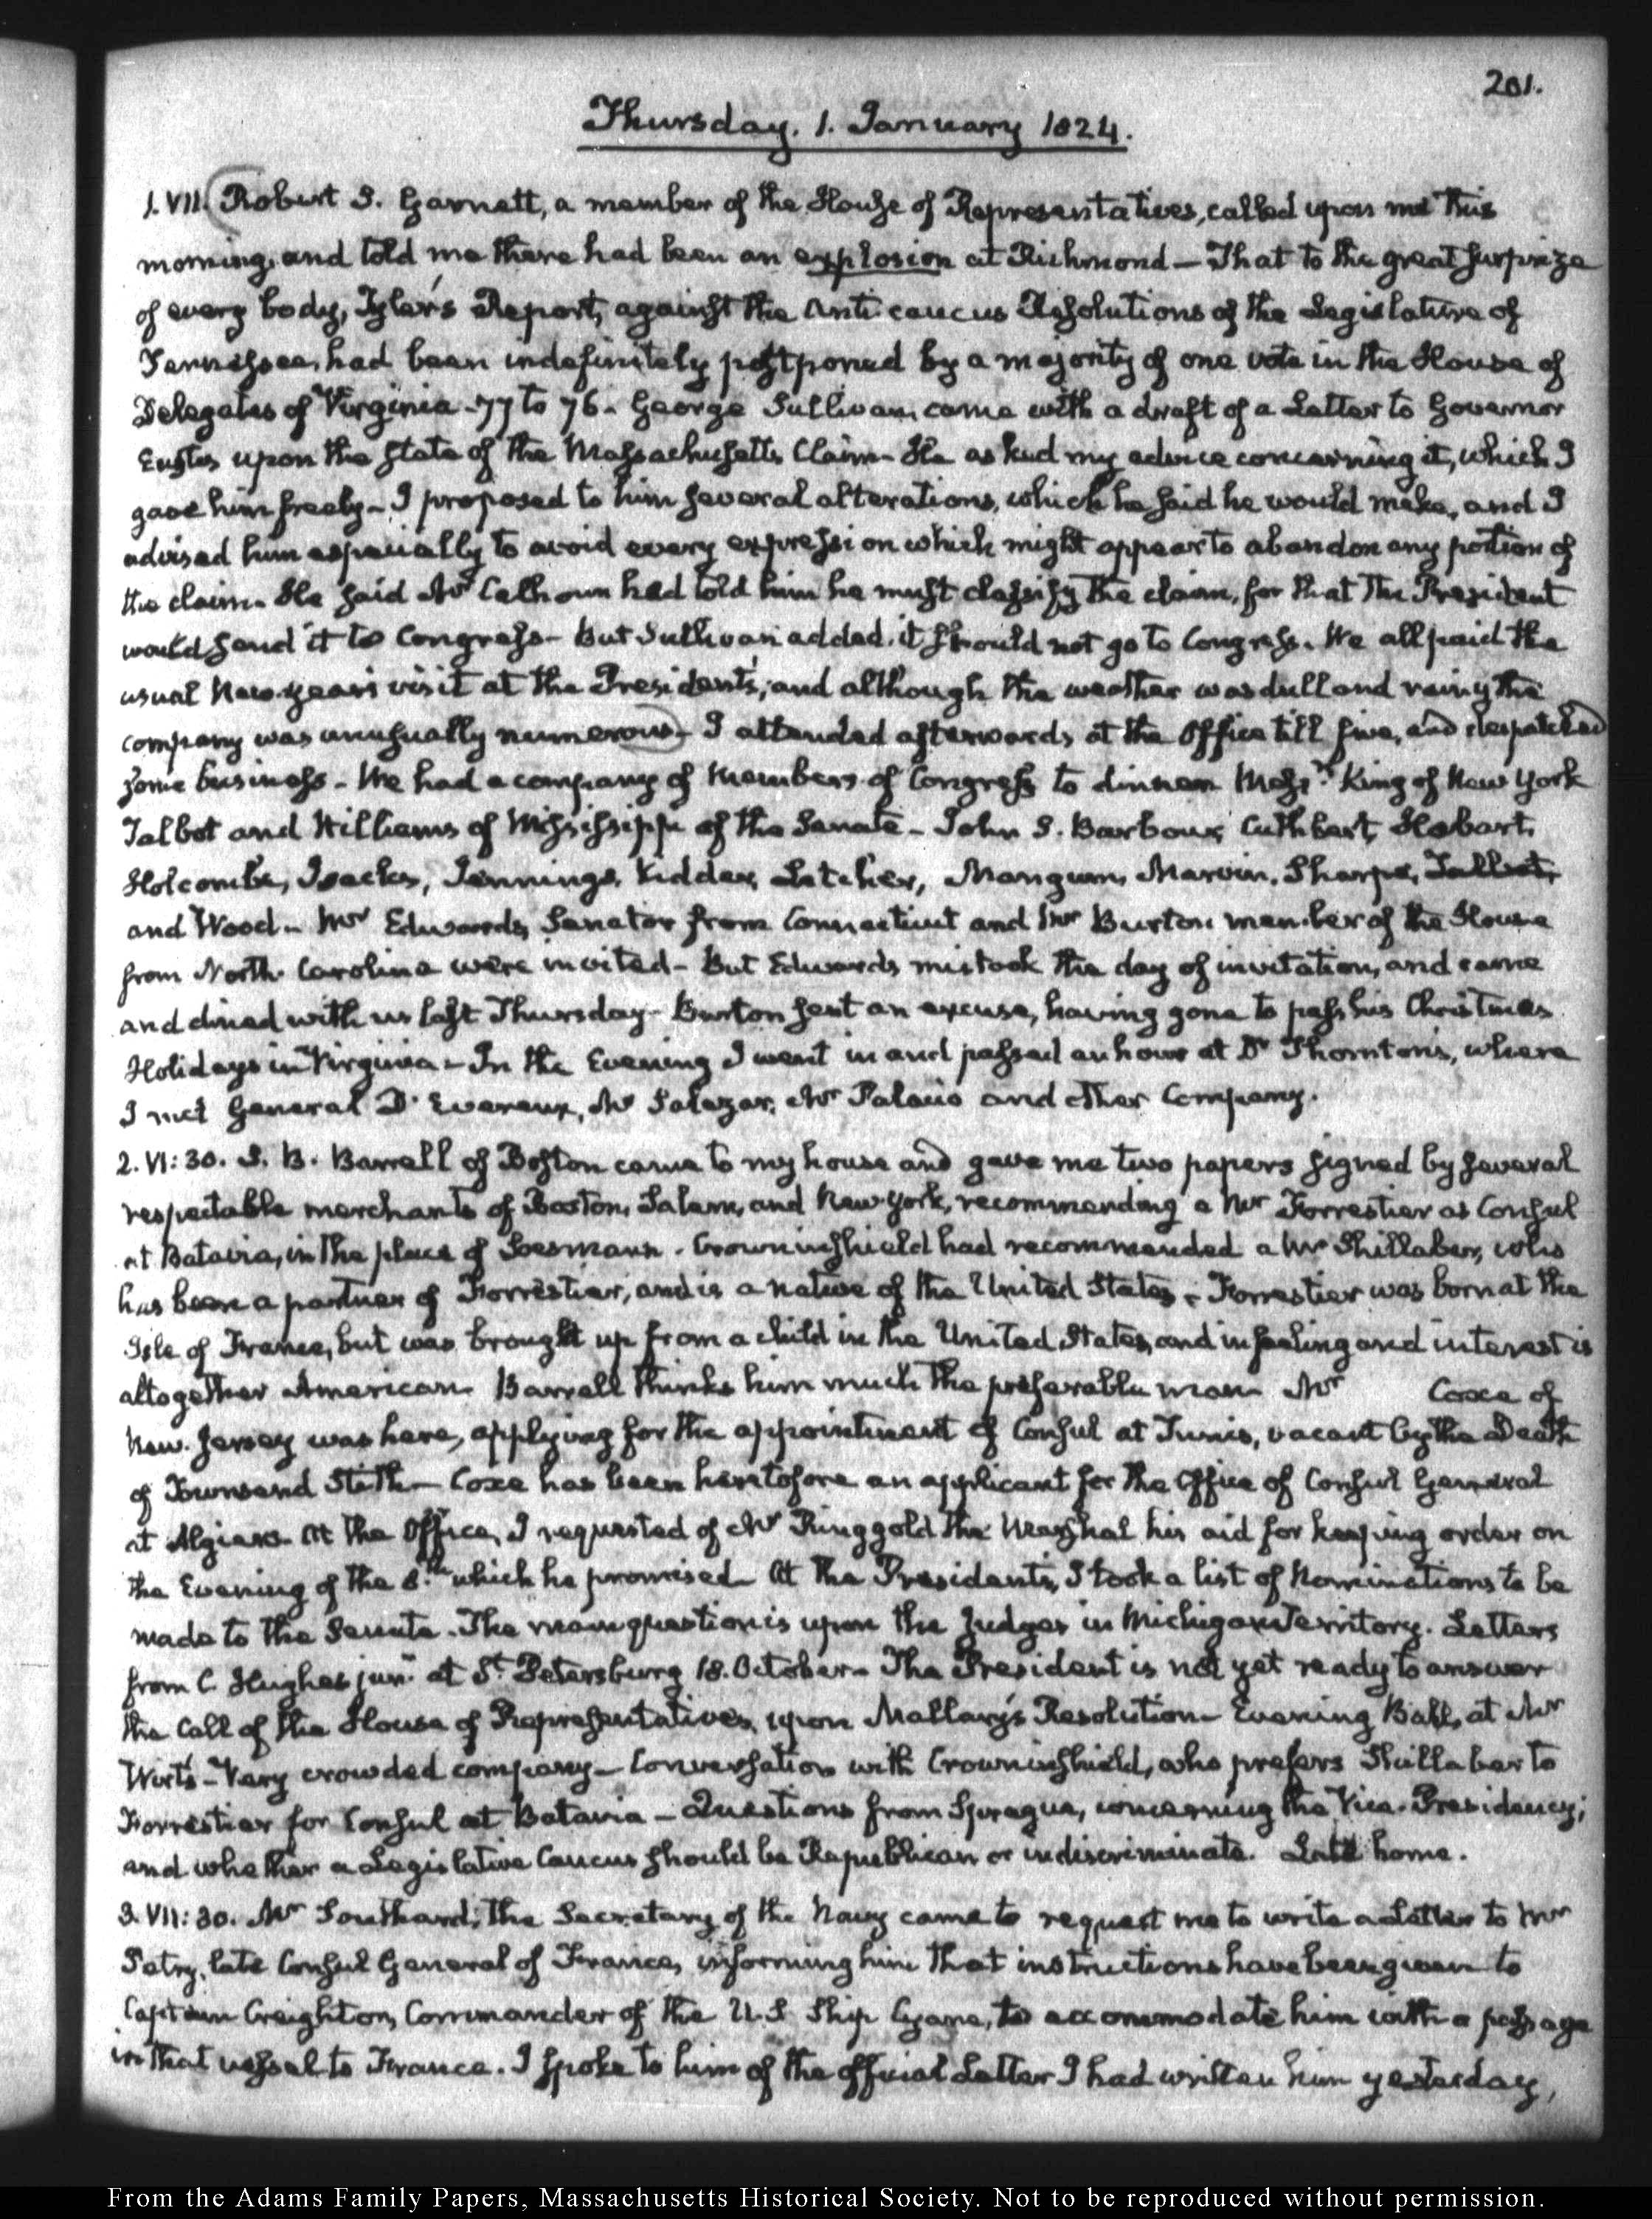 201.
Thursday. 1. January 1824.
1. VII. Robert S. Garnett, a member of the House of Representatives, called upon me this
morning, and told me there had been an explosion at Richmond — That to the great surprize
of every body, Tyler's Report, against the Anti caucus Resolutions of the Legislature of
Tennessee, had been indefinitely postponed by a majority of one vote in the House of
Delegates of Virginia - 77 to 76 - George Sullivan, came with a draft of a Letter to Governor
Eustis upon the state of the Massachusetts Claim - He asked my advice concerning it, which I
gave him freely - I proposed to him several alterations, which he said he would make, and I
advised him especially to avoid every expression which might appear to abandon any portion of
the claim. He said Mr Calhoun had told him he must classify the claim, for that the President
would send it to Congress - But Sullivan added, it should not go to Congress. We all paid the
usual New-years visit at the President's, and although the weather was dull and rainy the
company was unusually numerous - I attended afterwards at the Office till five, and despatched
some business - We had a company of Members of Congress to dinner. Messrs. King of New York
Talbot and Williams of Mississippi of the Senate - John S. Barbour, Cuthbert, Hobart,
Holcombe, Isacks, Jennings, Kidder, Letcher, Mangum, Marvin, Sharpe, Talbot,
and Wood - Mr Edwards, Senator from Connecticut and Mr Burton member of the House
from North Carolina were invited - But Edwards mistook the day of invitation, and came
and dined with us last Thursday - Burton sent an excuse, having gone to pass his Christmas
Holidays in Virginia - In the Evening I went in and passed an hour at Dr Thornton's, where
I met General D'Evereux, Mr Salazar, Mr Palacio and other Company.
2. VI: 30. S. B. Barrell of Boston came to my house and gave me two papers signed by several
respectable merchants of Boston, Salem, and New York, recommending a Mr Forrestier as Consul
at Batavia, in the place of Soesmann. Crowninshield had recommended a Mr Shillaber, who
has been a partner of Forrestier, and is a native of the United States - Forrestier was born at the
Isle of France, but was brought up from a child in the United States, and in feeling and interest is
altogether American. Barrell thinks him much the preferable man. Mr Coxe of
New-Jersey was here, applying for the appointment of Consul at Tunis, vacant by the Death
of Townsend Stith - Coxe has been heretofore an applicant for the Office of Consul General
at Algiers. At the Office, I requested of Mr Ringgold the Marshal his aid for keeping order on
the Evening of the 8th which he promised - At the President's, I took a list of Nominations to be
made to the Senate - The main question is upon the Judges in Michigan Territory. Letters
from C. Hughes junr. at St. Petersburg 18. October - The President is not yet ready to answer
the Call of the House of Representatives, upon Mallary's Resolution - Evening Ball, at Mr
Wirt's - Very crowded company - Conversation with Crowninshield, who prefers Shillaber to
Forrestier for Consul at Batavia - Questions from Sprague, concerning the Vice-Presidency;
and whether a Legislative Caucus should be Republican or indiscriminate. Late home.
3. VII: 30. Mr Southard, the Secretary of the Navy came to request me to write a Letter to Mr
Petry, late Consul General of France, informing him that instructions have been given to
Captain Creighton, Commander of the U.S Ship Cyane, to accommodate him with a passage
in that vessel to France. I spoke to him of the official Letter I had written him yesterday,
From the Adams Family Papers, Massachusetts Historical Society. Not to be reproduced without permission.